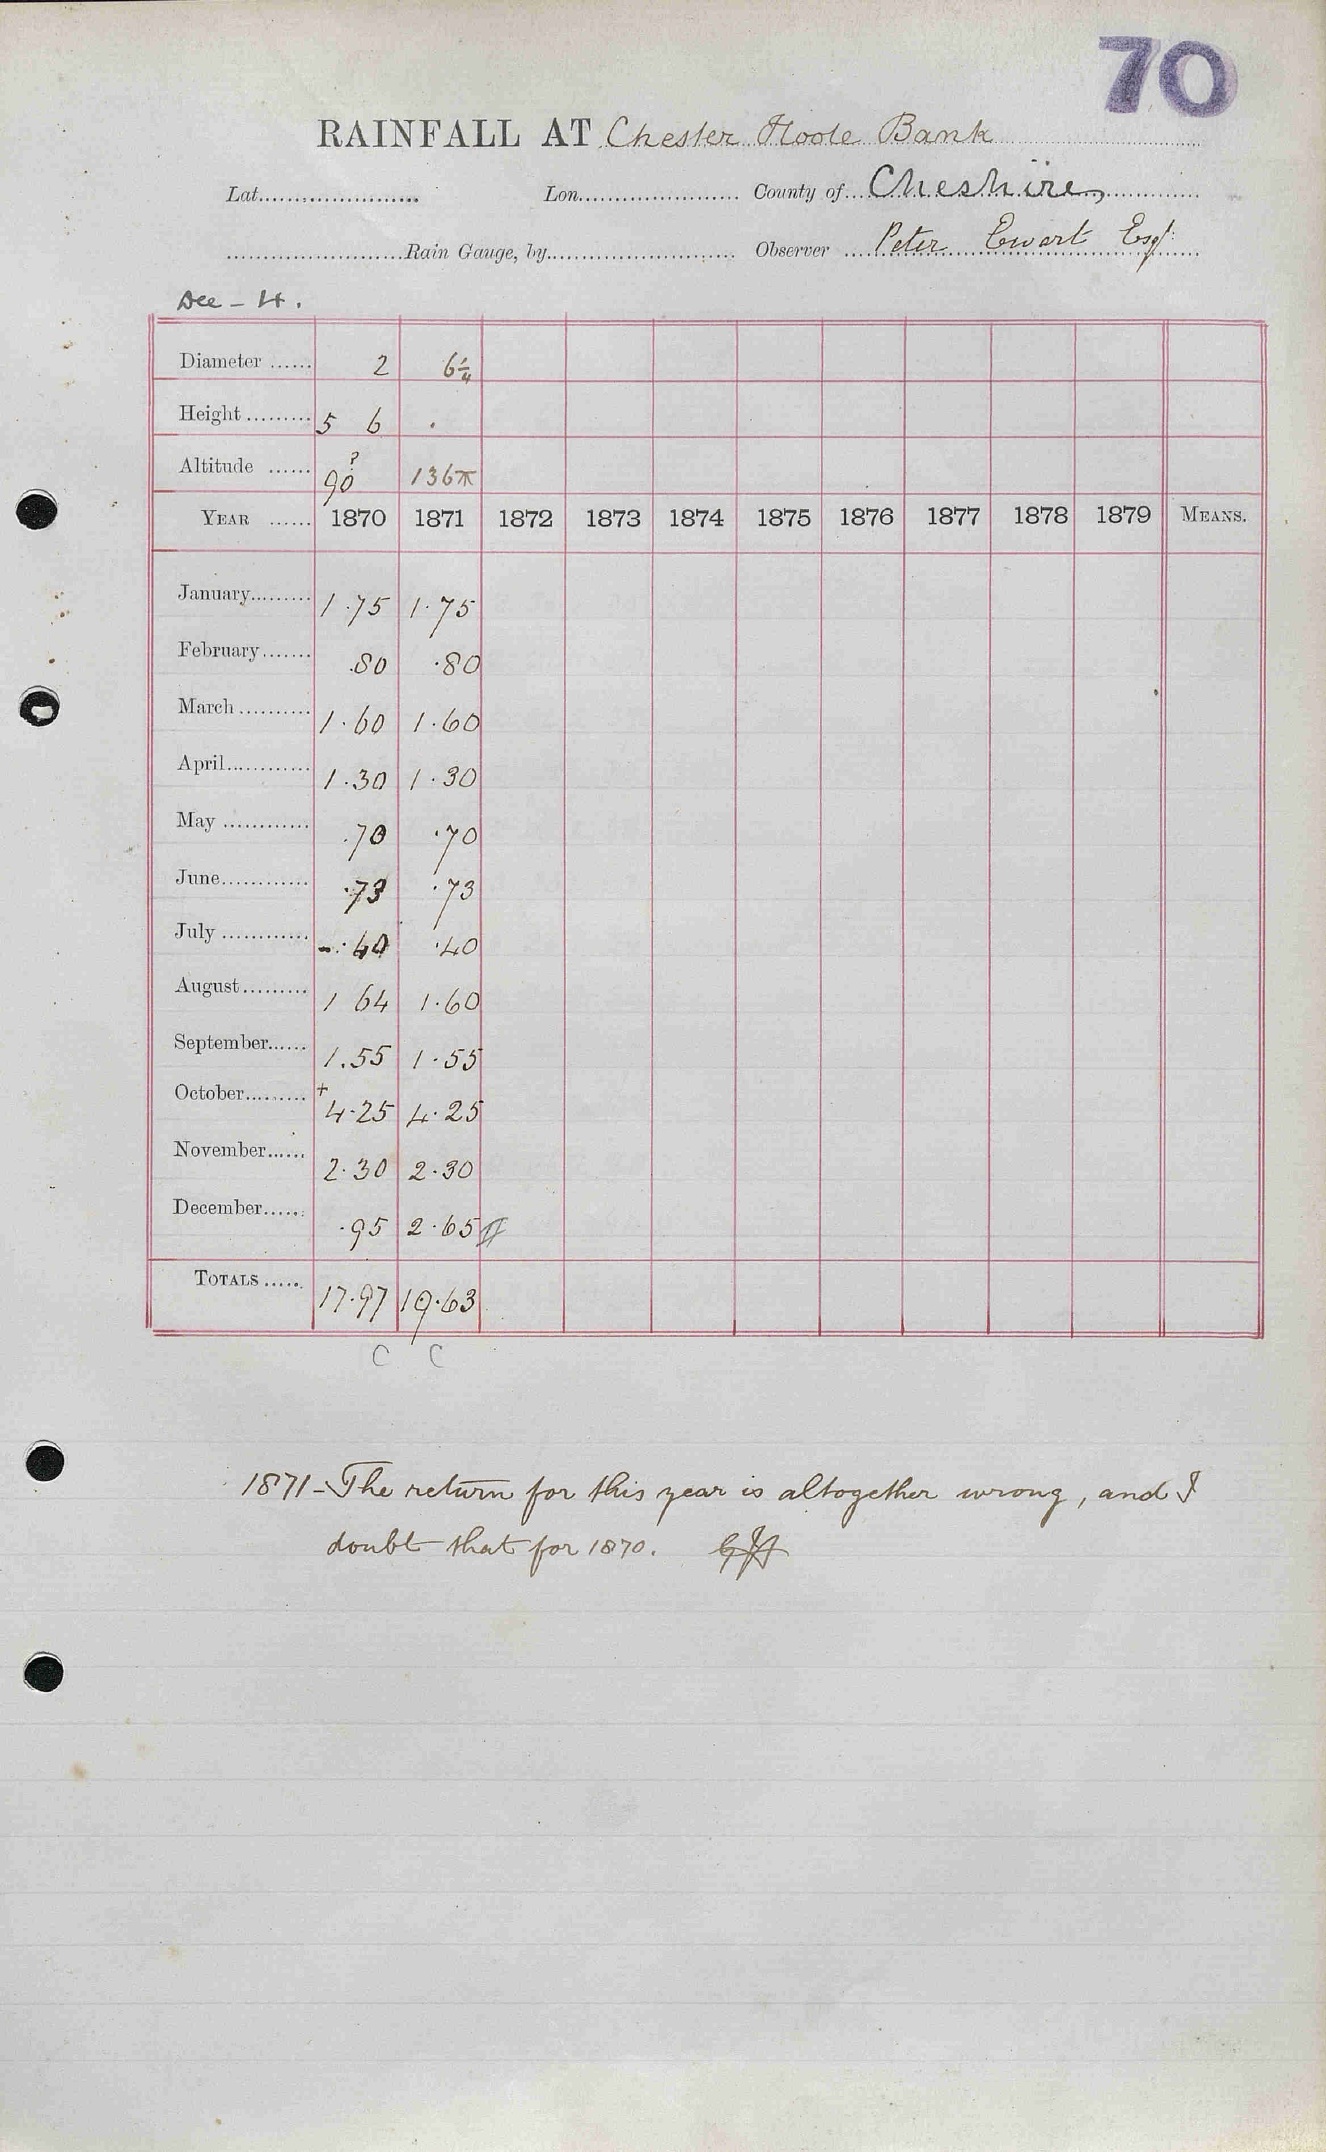 70
RAINFALL AT Chester Hoole Bank
Lat. Lon. County of Cheshire
Rain Gauge, by Observer Peter Ewart Esqr
Dee - 4.
Diameter 2 6¼
Height 5 6
Altitude 90 ? 136
YEAR 1870 1871 1872 1873 1874 1875 1876 1877 1878 1879 MEANS.
January 1.75 1.75
February .80 .80
March 1.60 1.60
April 1.30 1.30
May .70 .70
June .73 .73
July .40
August 1 64 1.60
September 1.55 1.55
October + 4.25 4.25
November 2.30 2.30
December .95 2.65
TOTALS 17.97 19.63
C C
1871 - The return for this year is altogether wrong, and I
doubt that for 1870.